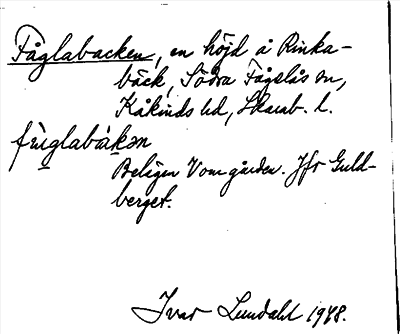 Fåglabacken, en höjd å Rinka-
bäck, Södra Fågelås sn,
Kåkinds hd, Skarab. l.
fùglabákən
Belägen V om gården. Jfr Guld-
berget.
Ivar Lundahl 1948.